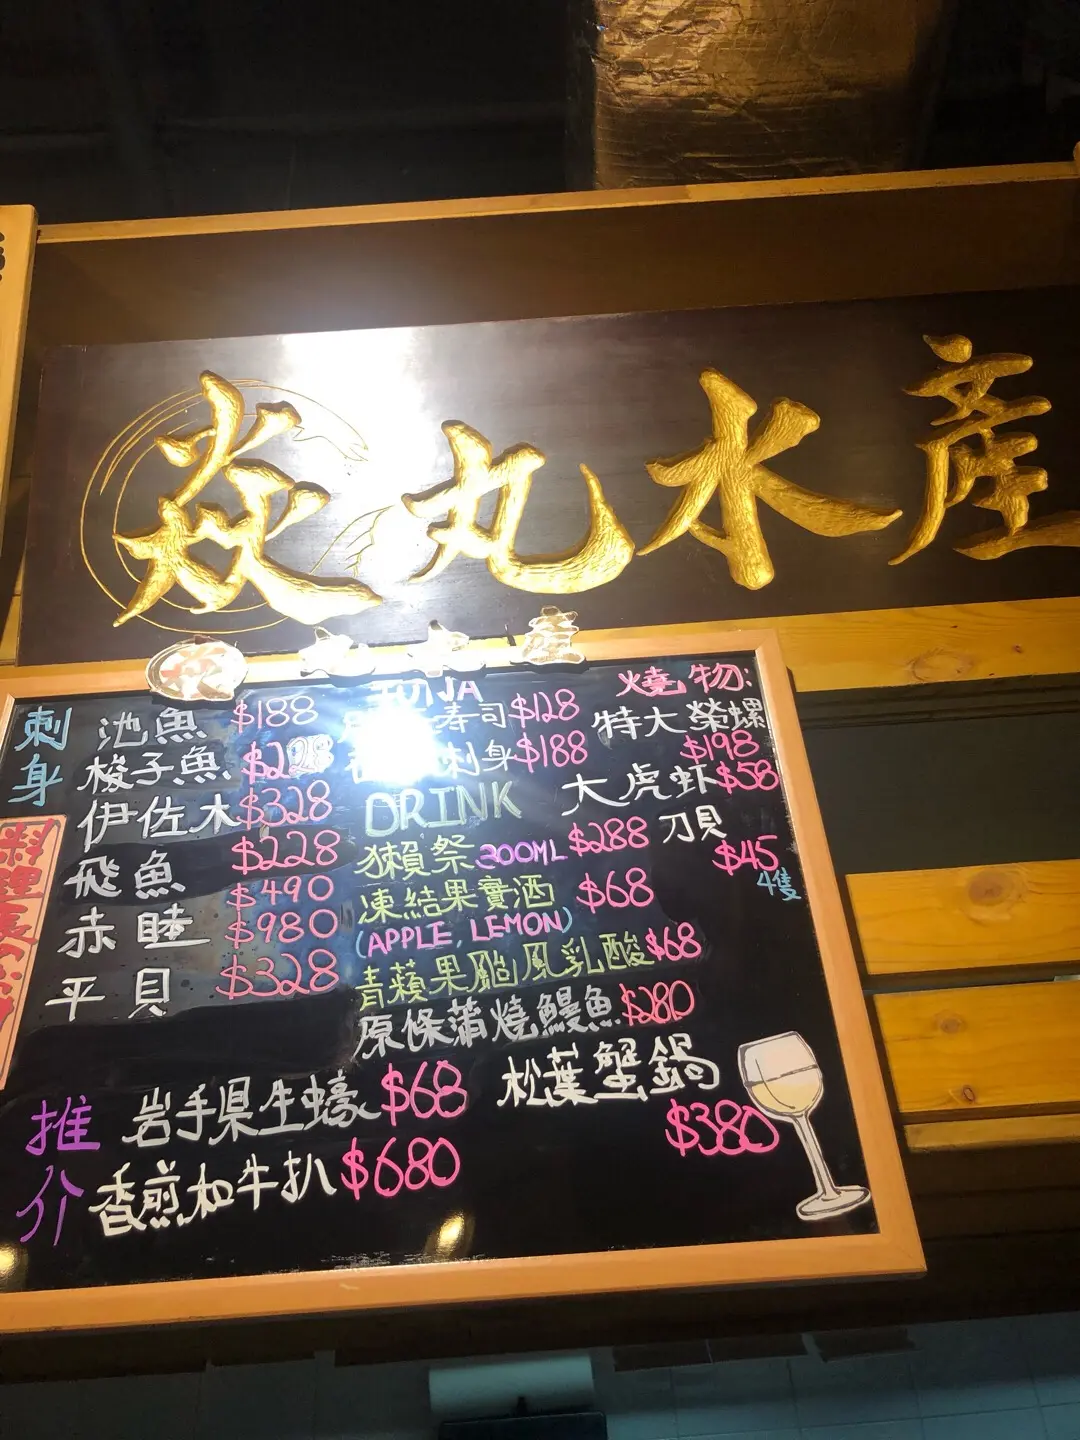 焱丸水產
刺身
池魚 $188
梭子魚
伊佐木 $328
飛魚 $228
$490
赤睦 $980
平貝 $328
寿司 $128
刺身 $188
DRINK
獺祭 300ML $288
凍結果實酒 $68
(APPLE, LEMON)
青蘋果颱風乳酸 $68
原條蒲燒鰻魚 $280
燒物:
特大榮螺
$198
大虎虾 $58
刀貝
$45
4隻
推介
岩手県生蠔 $68
香煎和牛扒 $680
松葉蟹鍋
$380